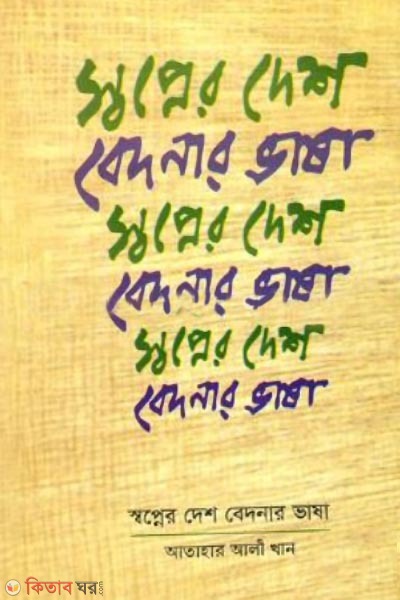 স্বপ্নের দেশ
বেদনার ভাষা
স্বপ্নের দেশ
বেদনার ভাষা
স্বপ্নের দেশ
বেদনার ভাষা
স্বপ্নের দেশ বেদনার ভাষা
আতাহার আলী খান
কিতাব ঘর.com